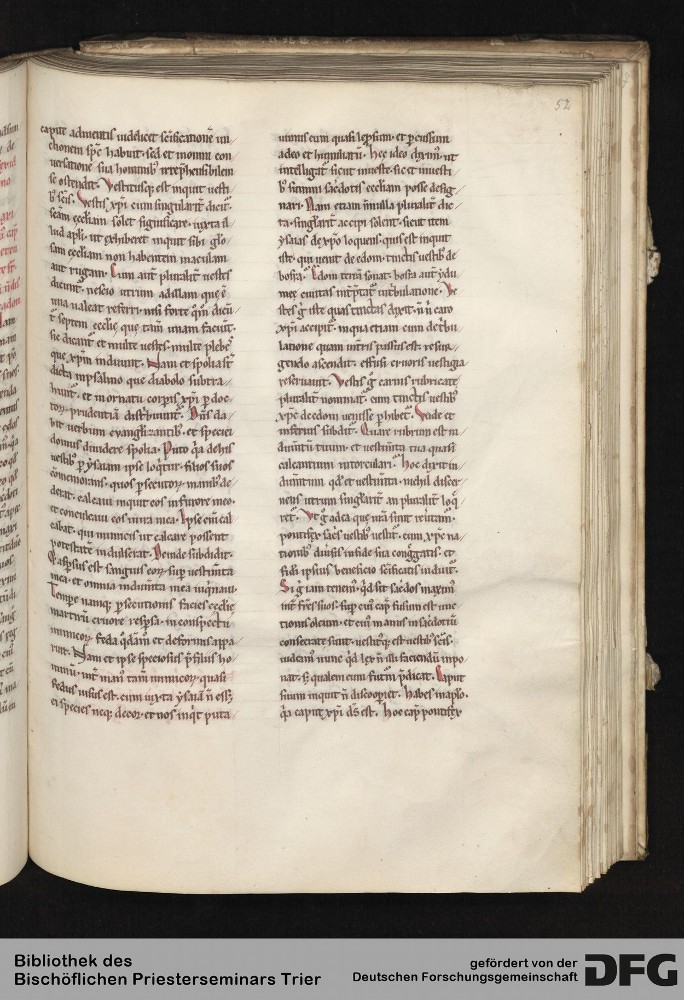 52
caput aduenientis uidelicet scificatione un
ctionem spc habuit. sed et in omni con
uersatione sua hominib; irreprehensibilem
se ostendit. Vestitusq; est inquit uesti
b; scis. Vestis xpi cum singularit dicit.
scam ecctiam solet significare. iuxta il
lud apli. ut exhiberet inquit sibi glo
sam ecctiam non habentem maculam
aut rugam. Cum aut pluralit uestes
dicunt. nescio utrum ad illam que e
una ualeat referri. nisi forte qm dicu
t septem ecclie que tam unam faciunt.
sic dicant et multe uestes. multe plebes
que xpm induunt. Nam et spolia st
dicta in psalmo que diabolo subtra
hunt. et in ornatu corpis xpi p doc
tor prudentiam distribuunt. Dns da
bit uerbum euanglizantib. et speciei
domus diuidere spolia. Puto qa de his
uestib; p ysaiam ipse loqtur. filios suos
comemorans. quos psecutor manib; de
derat. calcaui inquit eos in furore meo.
et conculcaui eos in ira mea. Ipse eni cal
cabat. qui inimicis ut calcare possent
potestate indulserat. Deinde subdidit.
Et aspersus est sanguis eor. sup uestimta
mea. et omnia indumta mea inqnaui.
Tempore namq; psecutionis facies ecclie
martiru cruore respsa. in conspectu
inimicor. feda qdam et deformis appa
ruit. Nam et ipse speciosus p filiis ho
minu. int man tam inimicor. quasi
fedus uisus est. cum iuxta ysaia n ess;
ei species neq; decor. et nos inqt puta
uimus eum quasi leprosum. et percussum
a deo et humiliatu. Hec ideo dixim. ut
intelligat sicut in ueste. sic et in uesti
b; summi sacdotis ecctiam posse desig
nari. Nam etiam nonulla pluralit dic
ta. singlarit accipi solent. sicut item
ysaias de xpo loquens. quis est inquit
iste. qui uenit de edom. tinctis uestib; de
bosra. Edom terra sonat. bosra aut ydu
mee ciuitas intptat tribulatione. Ve
stes g iste quas tinctas dixit. n n caro
xpi accipit. in qua etiam eum de tbu
latione quam in tris passus est. resur
gendo ascendit. effusi cruoris uestigia
reseruauit. Vestis g carnis rubricate
pluralit nominat. cum tinctis uestib;
xpc de edom uenisse phibet. Vnde et
inferius subdit. Quare rubrum est in
dumtu tuum. et uestimta tua quasi
calcantium in torculari. Hoc dixit in
dumtum qd et uestimta. nichil discer
nens utrum singlarit an pluralit loq
ret. Vt g ad ea que ura sunt reuitam.
pontifex sacis uestib; uestit. cum xpc na
tionib; diuisis in fide sua conggatis. et
fidei ipsius beneficio scificatis induit.
Si g iam tenem. qd sit sacdos maxim
int frs suos. sup cui cap fusum est unc
tionis oleum. et cui man in sacdotiu
consecrate sunt. uestitq; est uestib; scis.
uideam nunc qd lex n illi faciendu inpo
nat. s; qualem eum futm pdicat. Caput
suum inquit n discooperiet. Habes in aplo.
qa caput xpi ds est. Hoc cap pontifex
Bibliothek des
Bischöflichen Priesterseminars Trier
gefördert von der
Deutschen Forschungsgemeinschaft
DFG